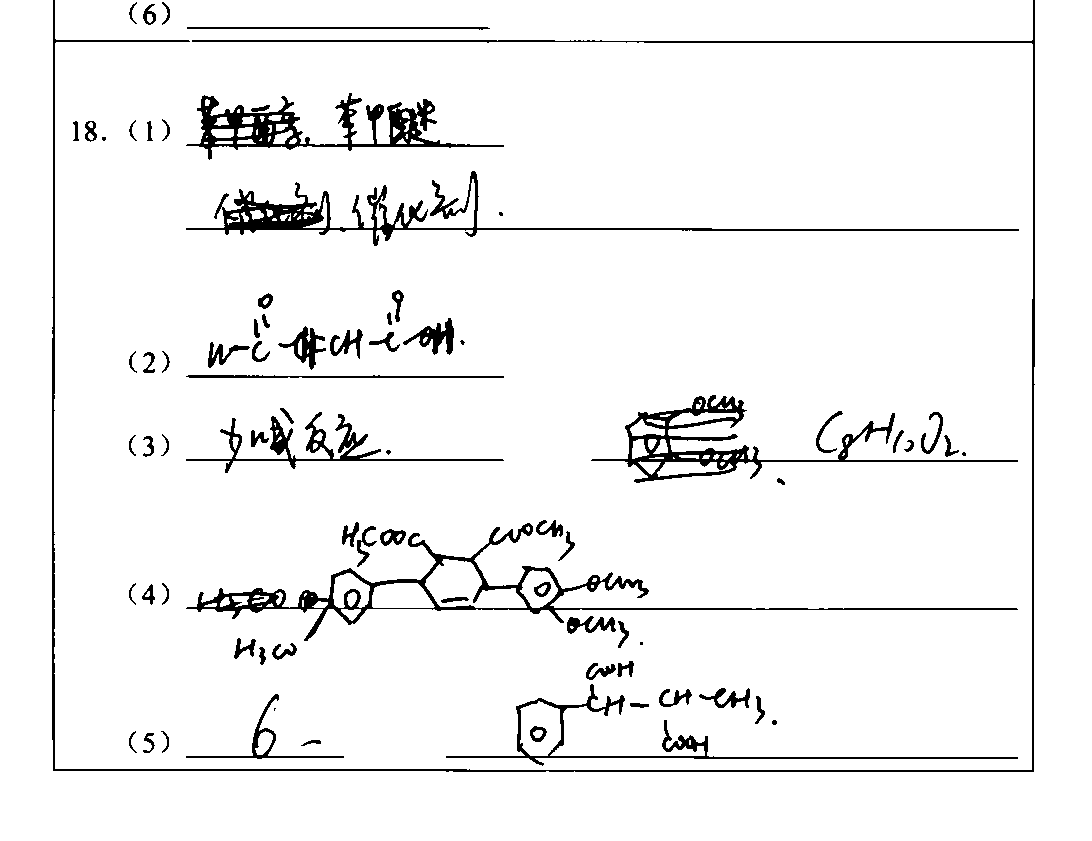 (6)
18. (1) 苯甲醚
催化剂.
(2) H-C-CH-C-OH.
O O
(3) 加成反应. C8H10O2.
(4) H3COOC COOCH3
OCH3
H3CO OCH3.
(5) 6 COOH
CH-CH-CH3.
COOH